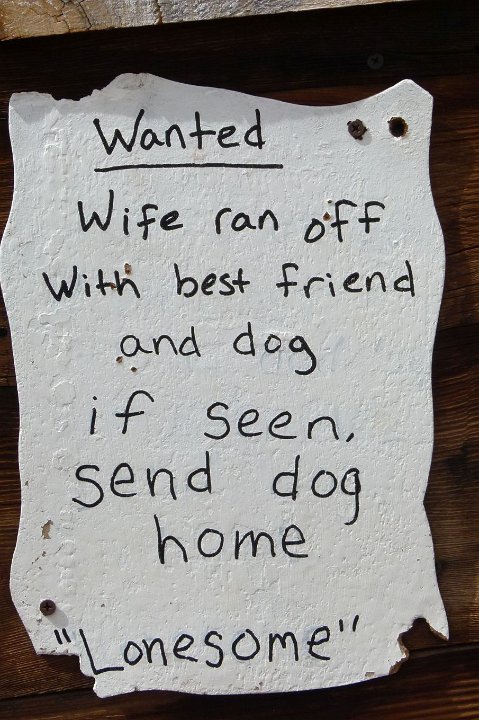 Wanted
Wife ran off
With best friend
and dog
if seen,
send dog
home
"Lonesome"